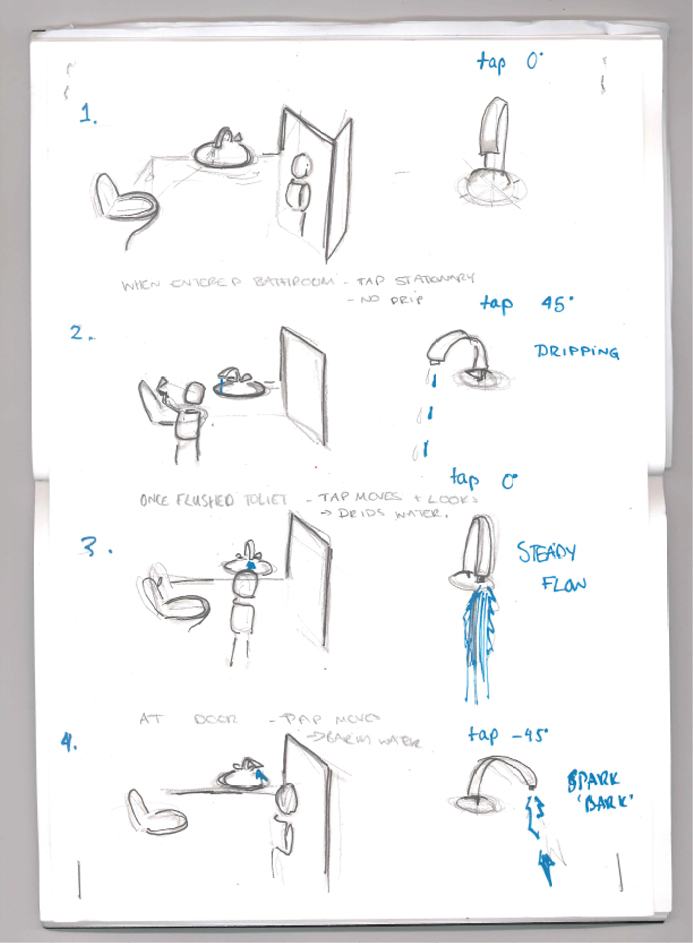 tap 0°
1.
WHEN ENTERED BATHROOM - TAP STATIONARY
- NO DRIP
tap 45°
2.
DRIPPING
tap 0°
ONCE FLUSHED TOLIET - TAP MOVES + LOOKS
→ DRIDS WATER.
3.
STEADY
FLOW
AT DOOR - TAP MOVES
WATER
4.
tap -45°
SPARK
'BARK'